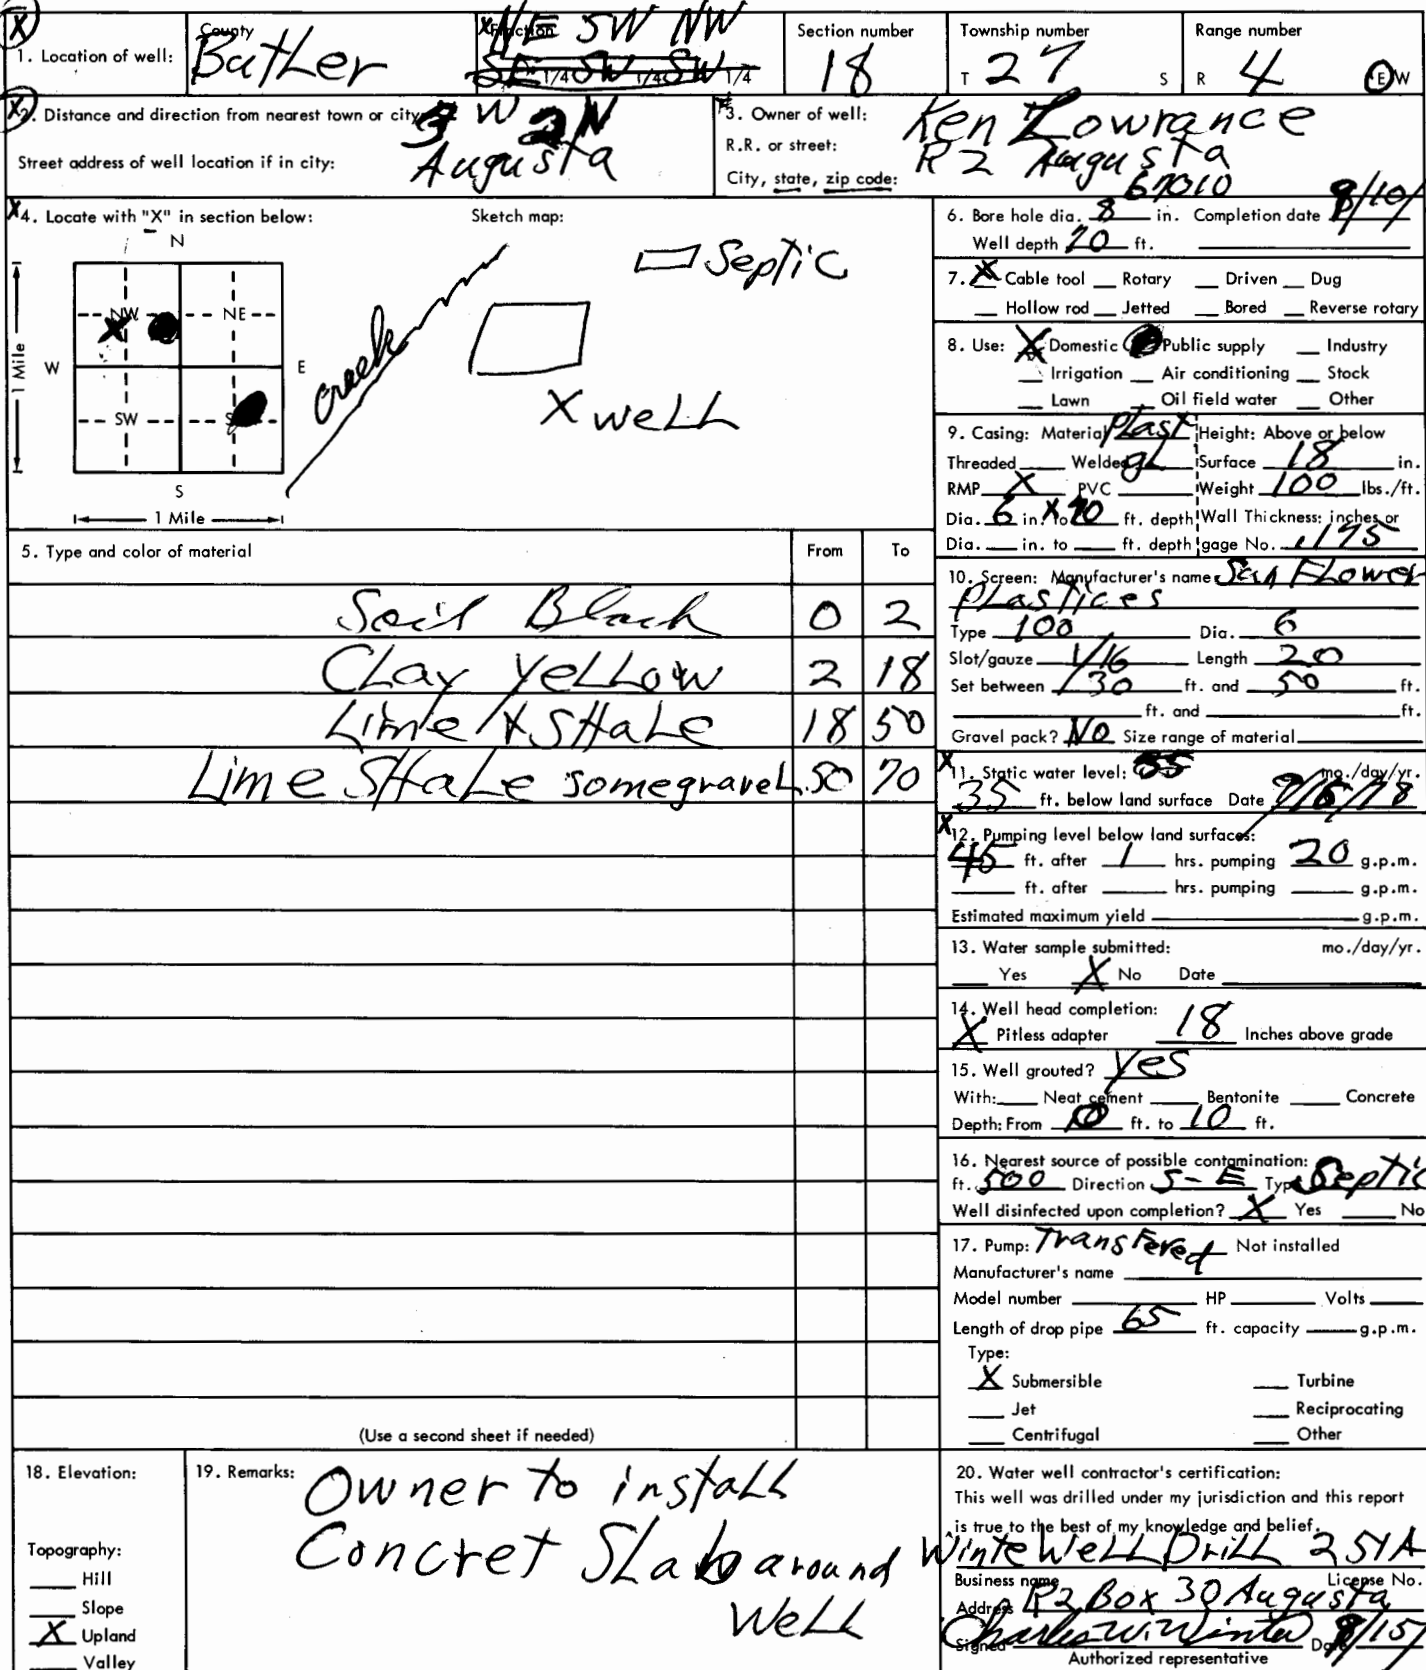 X County Butler
1. Location of well:
X Fraction NE SW NW
SE 1/4 SW 1/4 SW 1/4
Section number 18
Township number T 27 S
Range number R 4 E W
X 2. Distance and direction from nearest town or city: 3 W 2 N
Street address of well location if in city: Augusta
3. Owner of well: Ken Lowrance
R.R. or street: R 2 Augusta
City, state, zip code: 67010
X 4. Locate with "X" in section below:
Sketch map:
N
NW NE
W E
SW
S
1 Mile
1 Mile
creek
Septic
X well
5. Type and color of material From To
Soil Black 0 2
Clay Yellow 2 18
Lime & SHaLe 18 50
Lime SHaLe somegraveL 50 70
(Use a second sheet if needed)
6. Bore hole dia. 8 in. Completion date 8/10/
Well depth 70 ft.
7. X Cable tool Rotary Driven Dug
Hollow rod Jetted Bored Reverse rotary
8. Use: X Domestic Public supply Industry
Irrigation Air conditioning Stock
Lawn Oil field water Other
9. Casing: Material Plast Height: Above or below
Threaded Welded gL Surface 18 in.
RMP X PVC Weight 100 lbs./ft.
Dia. 6 in. to 70 ft. depth Wall Thickness: inches or
Dia. in. to ft. depth gage No. .175
10. Screen: Manufacturer's name Sun FLower
PLastices
Type 100 Dia. 6
Slot/gauze 1/16 Length 20
Set between 30 ft. and 50 ft.
ft. and ft.
Gravel pack? No Size range of material
X 11. Static water level: mo./day/yr.
35 ft. below land surface Date
X 12. Pumping level below land surfaces:
45 ft. after 1 hrs. pumping 20 g.p.m.
ft. after hrs. pumping g.p.m.
Estimated maximum yield g.p.m.
13. Water sample submitted: mo./day/yr.
Yes X No Date
14. Well head completion:
X Pitless adapter 18 Inches above grade
15. Well grouted? Yes
With: Neat cement Bentonite Concrete
Depth: From 0 ft. to 10 ft.
16. Nearest source of possible contamination:
ft. 500 Direction S-E Type Septic
Well disinfected upon completion? X Yes No
17. Pump: Transfered Not installed
Manufacturer's name
Model number HP Volts
Length of drop pipe 65 ft. capacity g.p.m.
Type:
X Submersible Turbine
Jet Reciprocating
Centrifugal Other
18. Elevation:
Topography:
Hill
Slope
X Upland
Valley
19. Remarks: Owner to install
Concret SLab around
WeLL
20. Water well contractor's certification:
This well was drilled under my jurisdiction and this report
is true to the best of my knowledge and belief.
Winte WeLL DriLL 251A
Business name License No.
Address R2 Box 30 Augusta
Signed Charles W. Winter Date 8/15/
Authorized representative